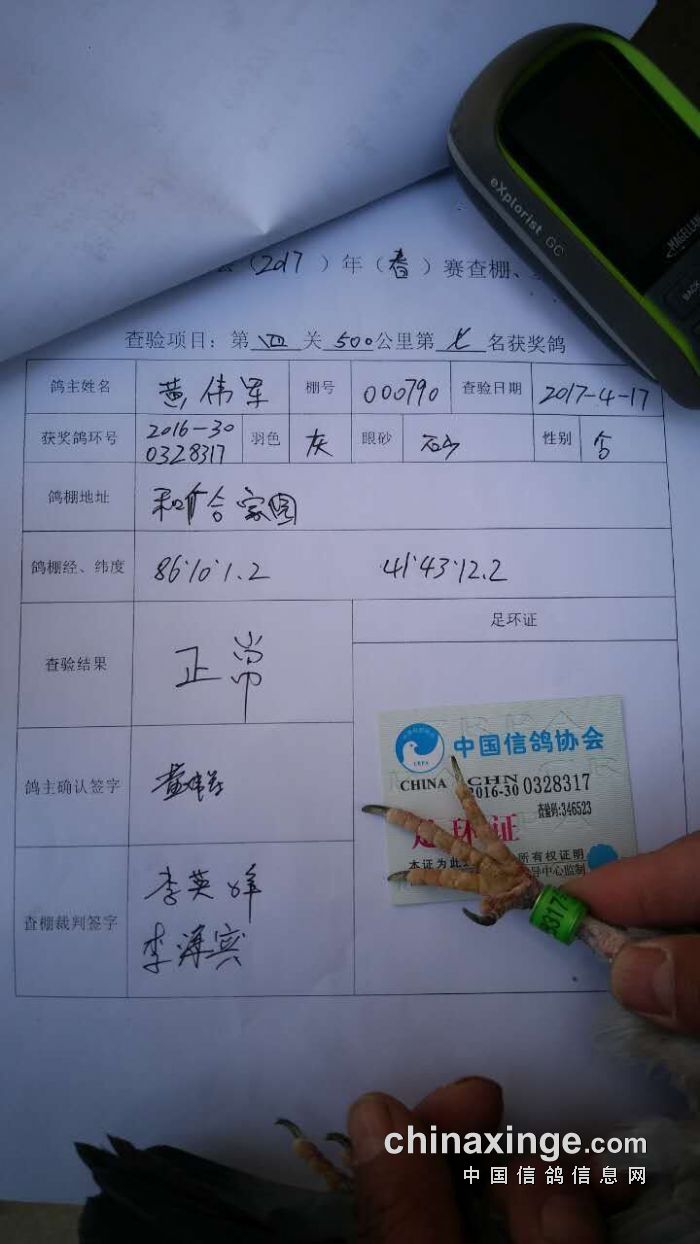 eXplorist GC
MAGELLAN
BACK
（2017）年（春）赛查棚、
查验项目：第四关500公里第七名获奖鸽
鸽主姓名 黄伟军 棚号 000790 查验日期 2017-4-17
获奖鸽环号 2016-30 0328317 羽色 灰 眼砂 石山 性别
鸽棚地址 和 合家园
鸽棚经、纬度 86°10'1.2 41°43'12.2
查验结果 正常
足环证
鸽主确认签字 黄伟军
查棚裁判签字 李英
李 宾
中国信鸽协会
CHINA CHN
2016-30 0328317
查验码:346523
足环证
本证为此 所有权证明
导中心监制
8317
chinaxinge.com
中国信鸽信息网